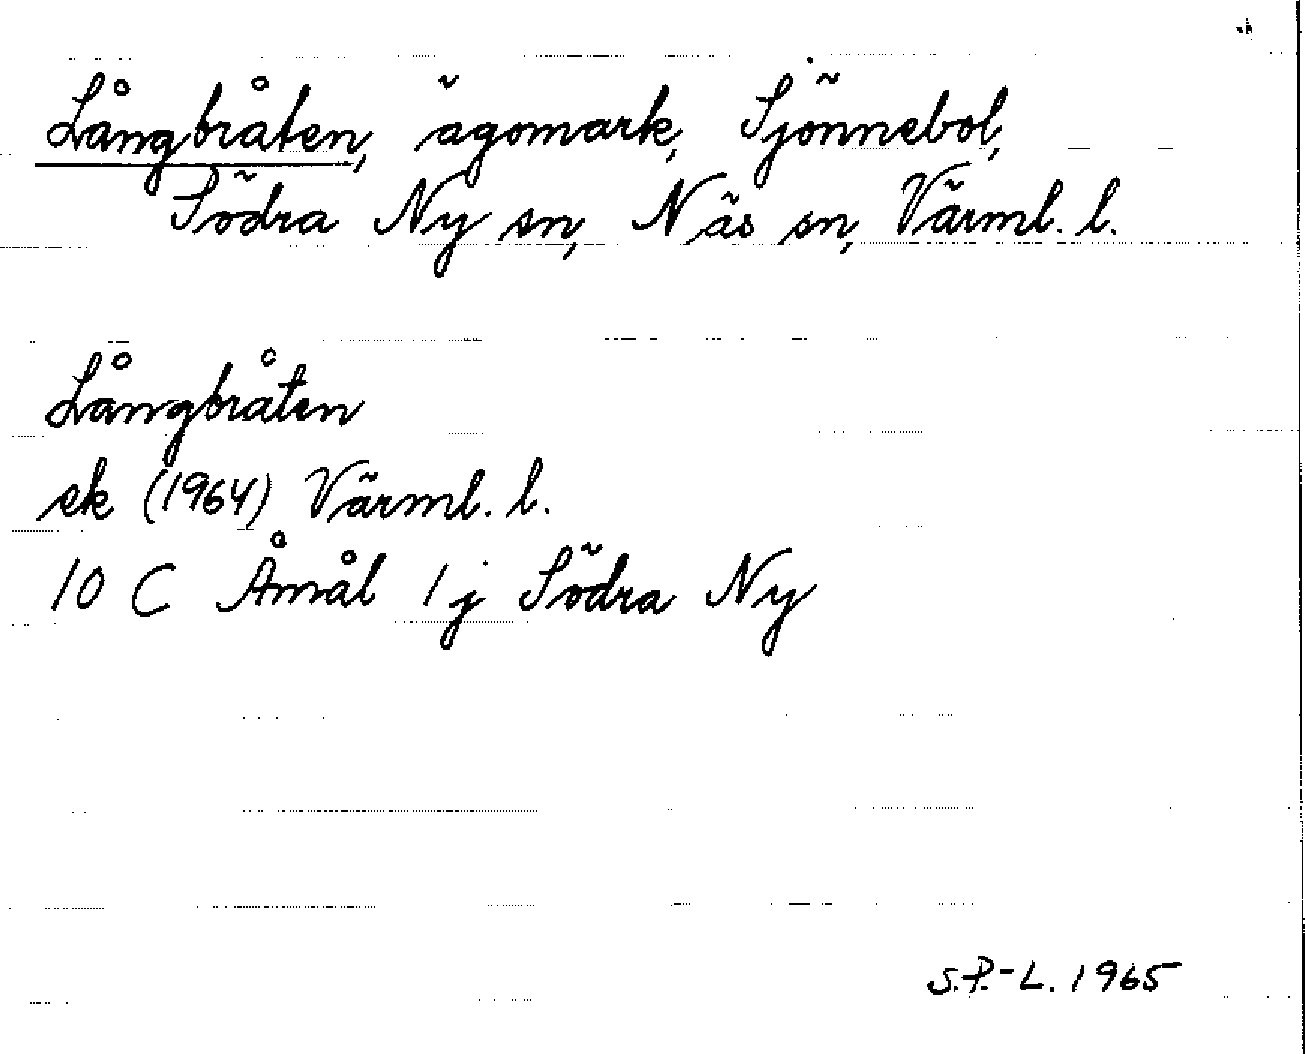 Långbråten, ägomark, Sjönnebol,
Södra Ny sn, Näs sn, Värml. l.
Långbråten
ek (1964) Värml. l.
10 C Åmål 1 j Södra Ny
S.P.-L. 1965